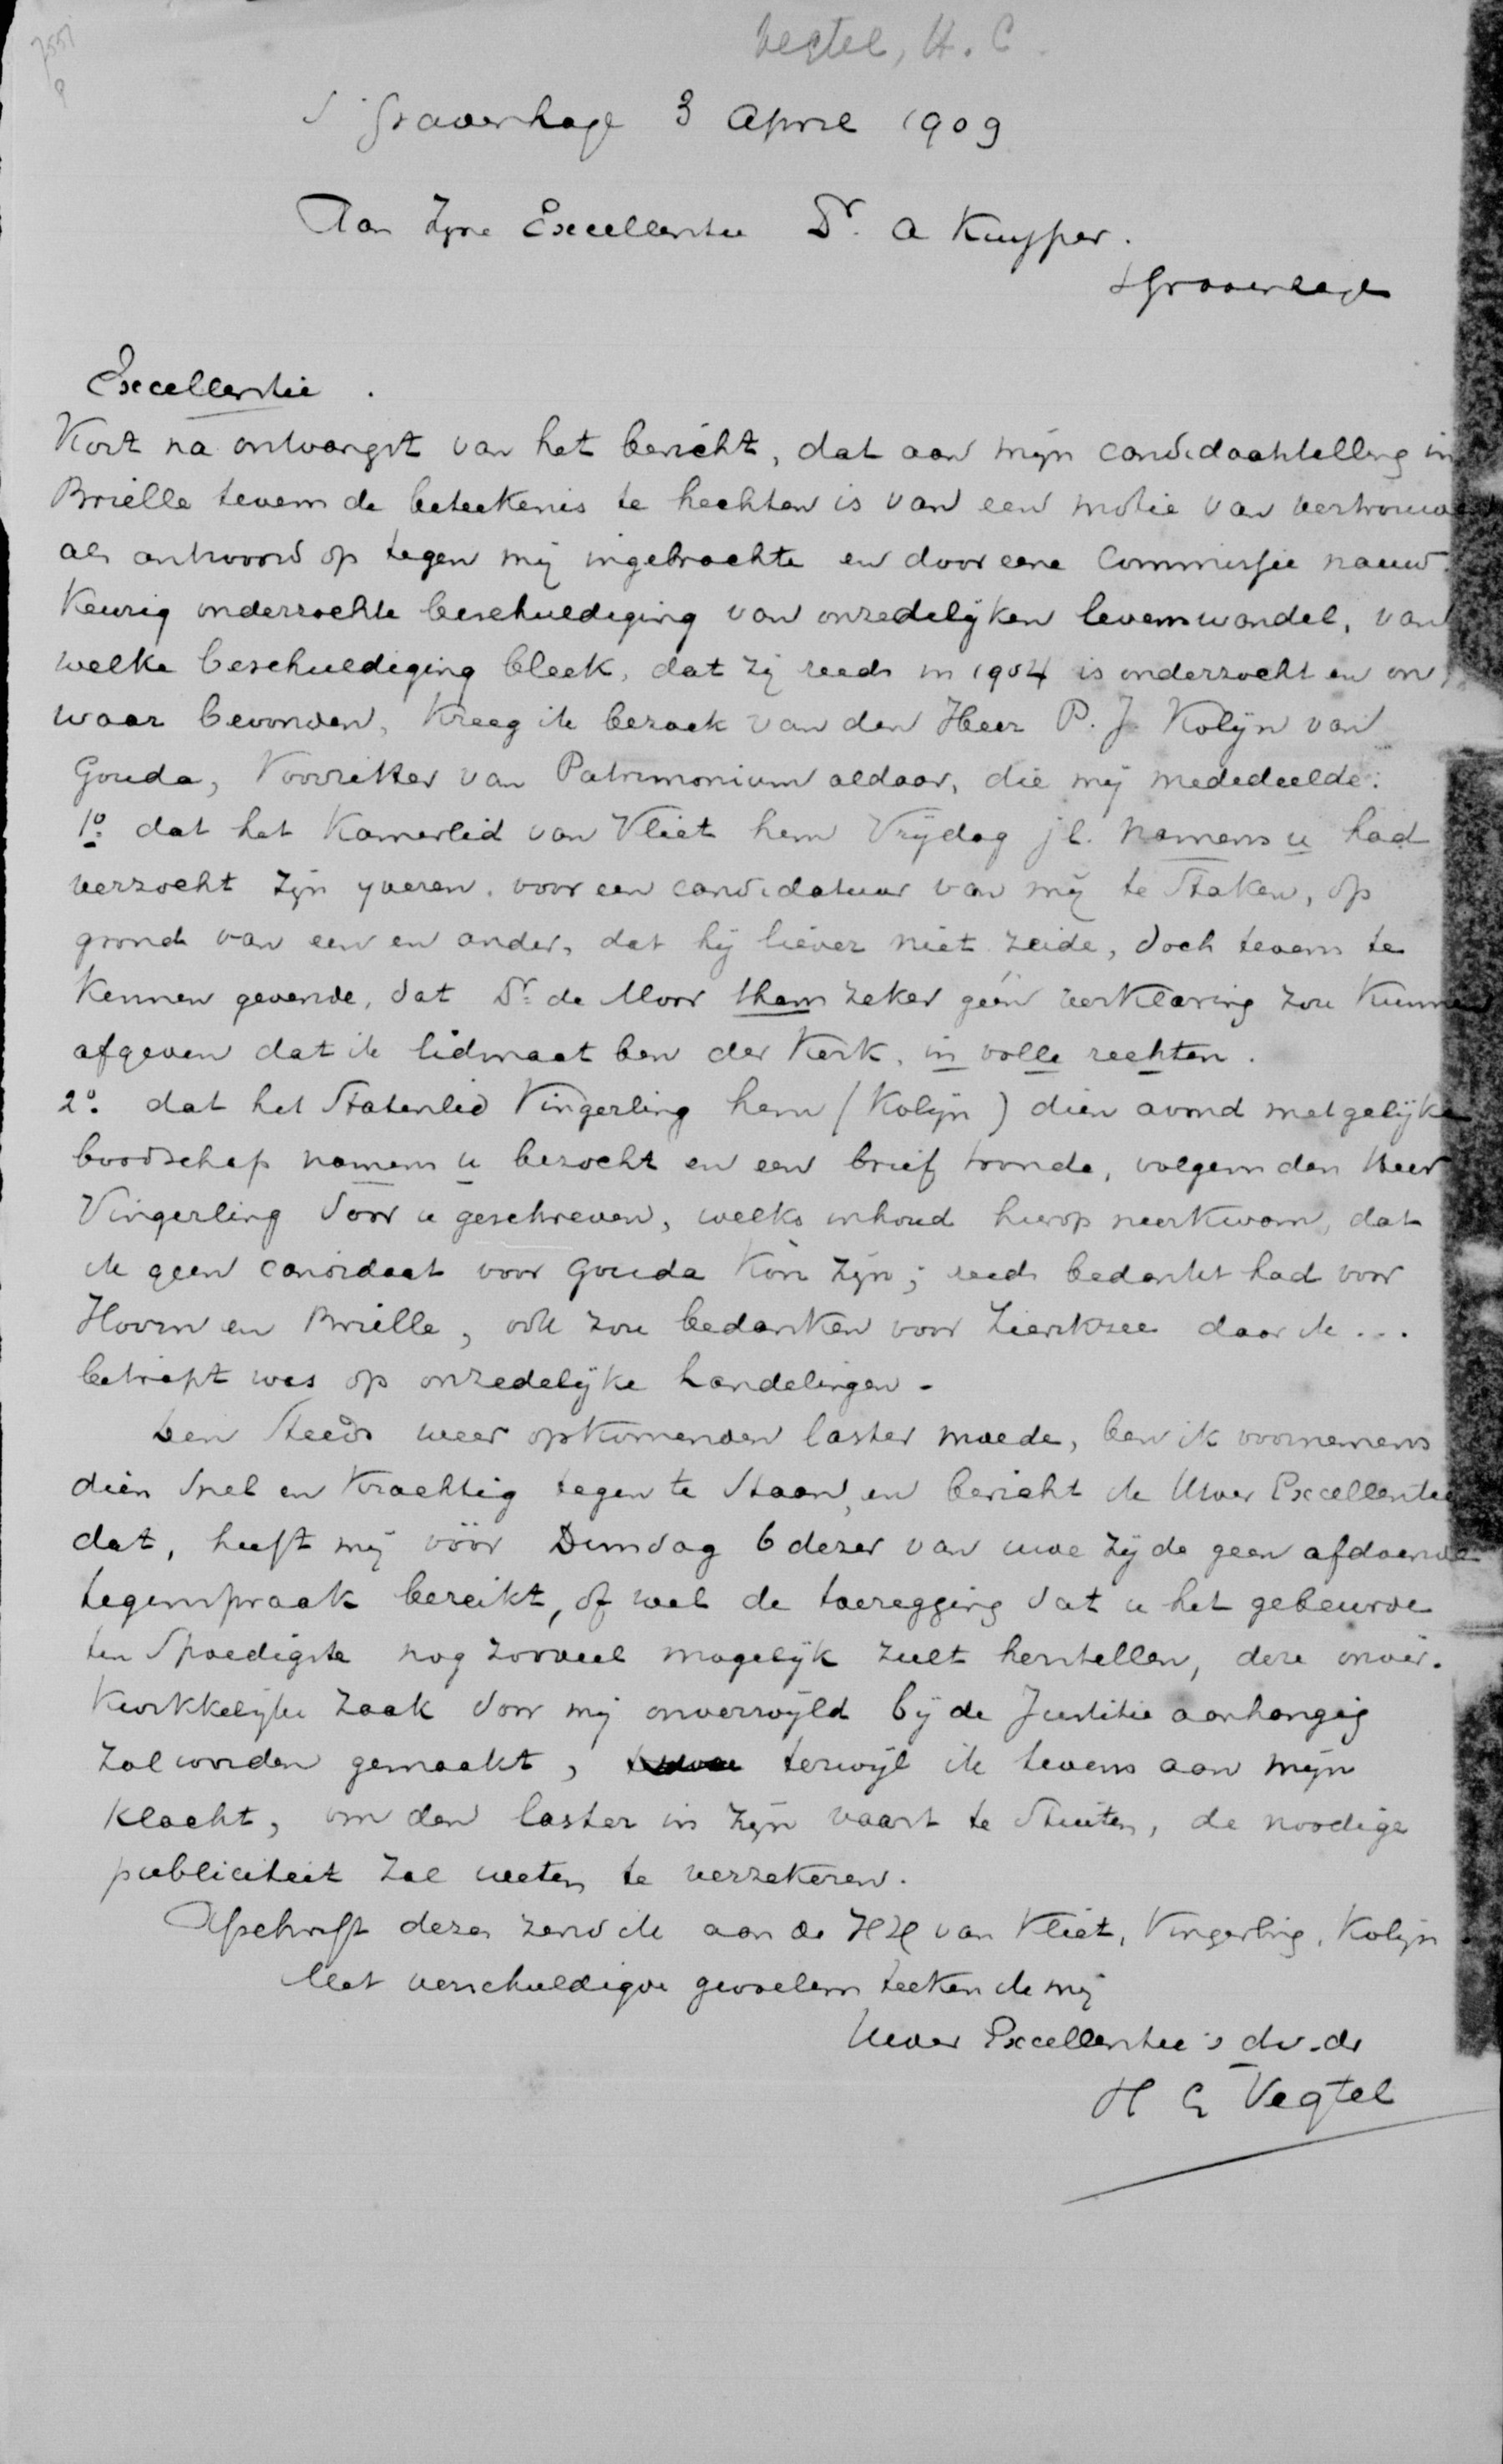 7551
9
Vegtel, H. C.
s'Gravenhage 3 April 1909
Aan Zijne Excellentie Dr. A Kuyper.
s'Gravenhage
Excellentie.
Kort na ontvangst van het bericht, dat aan mijn candidaatstelling in
Brielle tevens de beteekenis te hechten is van een motie van vertrouwen
als antwoord op tegen mij ingebrachte en door eene Commissie nauw-
keurig onderzochte beschuldiging van onzedelijken levenswandel, van
welke beschuldiging bleek, dat zij reeds in 1904 is onderzocht en on-
waar bevonden, kreeg ik bezoek van den Heer P. J. Kolijn van
Gouda, Voorzitter van Patrimonium aldaar, die mij mededeelde:
1o. dat het Kamerlid van Vliet hem Vrijdag jl. namens u had
verzocht zijn yveren voor een candidatuur van mij te staken, op
grond van een en ander, dat hij liever niet zeide, doch tevens te
kennen gevende, dat Ds. de Moor thans zeker géén verklaring zou kunnen
afgeven dat ik lidmaat ben der Kerk, in volle rechten.
2o. dat het Statenlid Vingerling hem (Kolijn) dien avond met gelijke
boodschap namens u bezocht en een brief toonde, volgens den Heer
Vingerling door u geschreven, welks inhoud hierop neerkwam, dat
ik geen candidaat voor Gouda kòn zijn; reeds bedankt had voor
Hoorn en Brielle, ook zou bedanken voor Zierikzee daar ik ...
betrapt was op onzedelijke handelingen.
Den steeds weer opkomenden laster moede, ben ik voornemens
dien snel en krachtig tegen te staan, en bericht ik Uwer Excellentie
dat, heeft mij vóór Dinsdag 6 dezer van uwe zijde geen afdoende
tegenspraak bereikt, of wel de toezegging dat u het gebeurde
ten spoedigste nog zooveel mogelijk zult herstellen, deze onver-
kwikkelijke zaak door mij onverwijld bij de Justitie aanhangig
zal worden gemaakt, terwijl ik tevens aan mijn
klacht, om den laster in zijn vaart te stuiten, de noodige
publiciteit zal weten te verzekeren.
Afschrift dezes zend ik aan de HH van Vliet, Vingerling, Kolijn.
Met verschuldigde gevoelens teeken ik mij
Uwer Excellentie's dv. dr
H C Vegtel